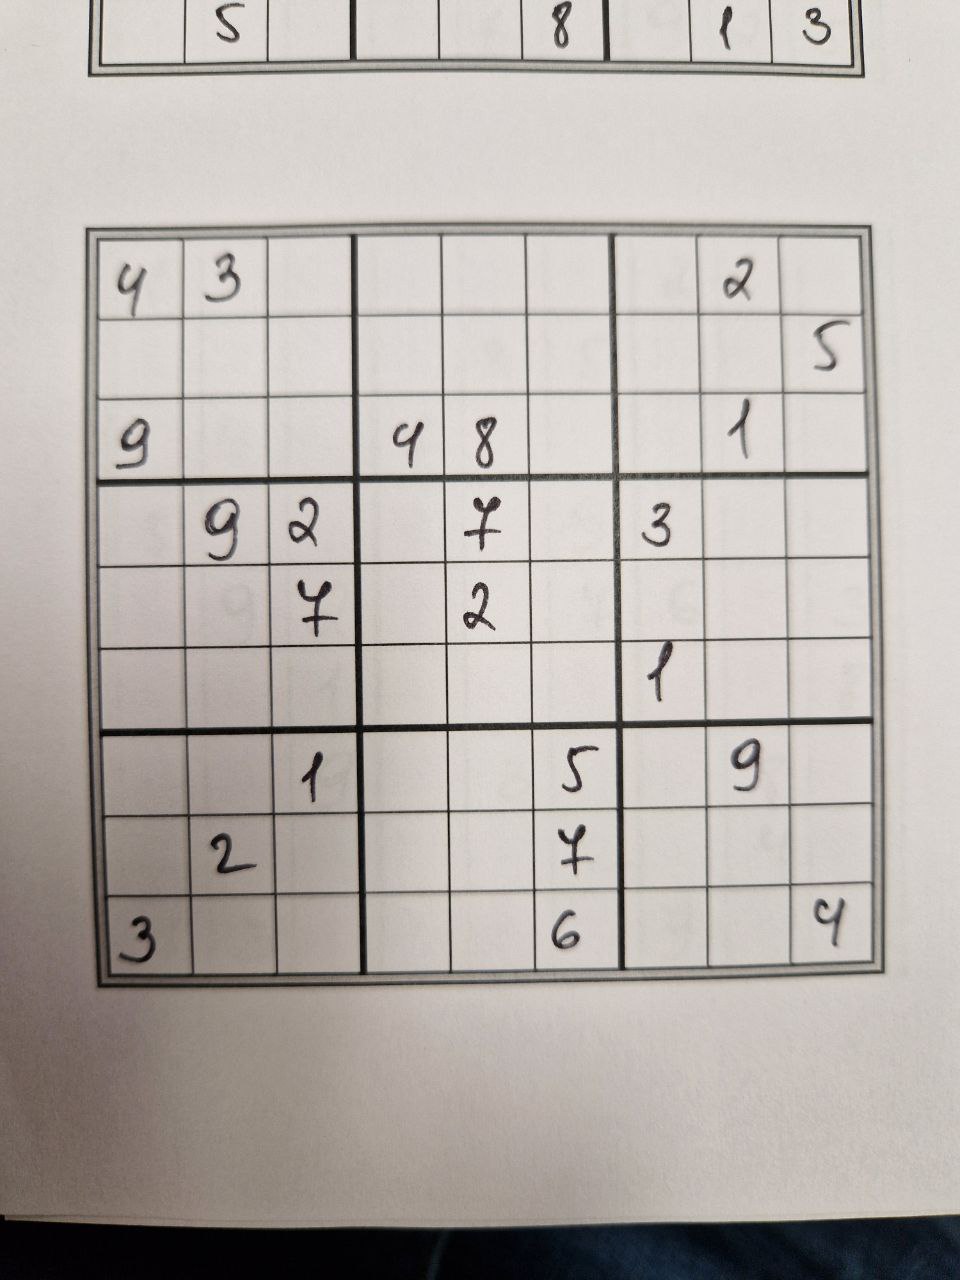 5 8 1 3
4 3 2
5
9 4 8 1
9 2 7 3
7 2
1
1 5 9
2 7
3 6 4